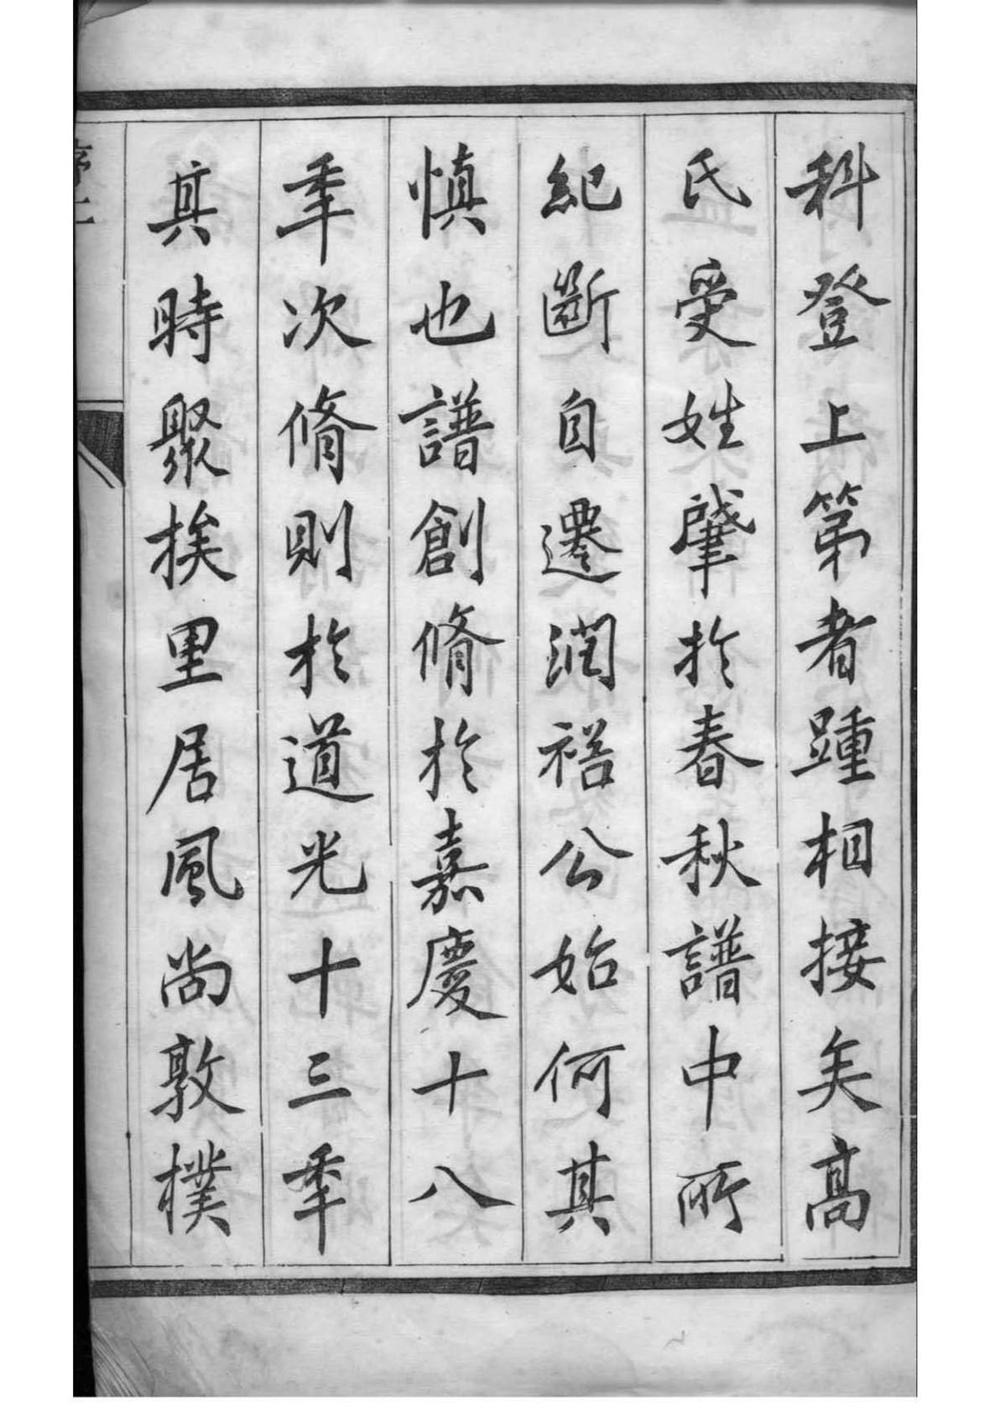 科登上第者踵相接矣高
氏受姓肇於春秋譜中所
紀斷自遷潤禧公始何其
慎也譜創脩於嘉慶十八
秊次脩則於道光十三秊
其時聚族里居風尚敦樸